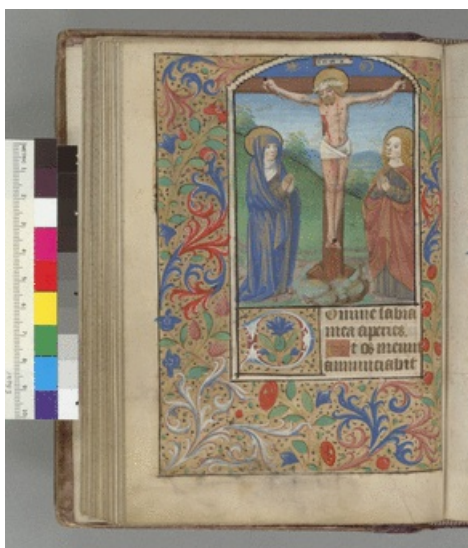 Domine labia
mea aperies.
Et os meum
annunciabit